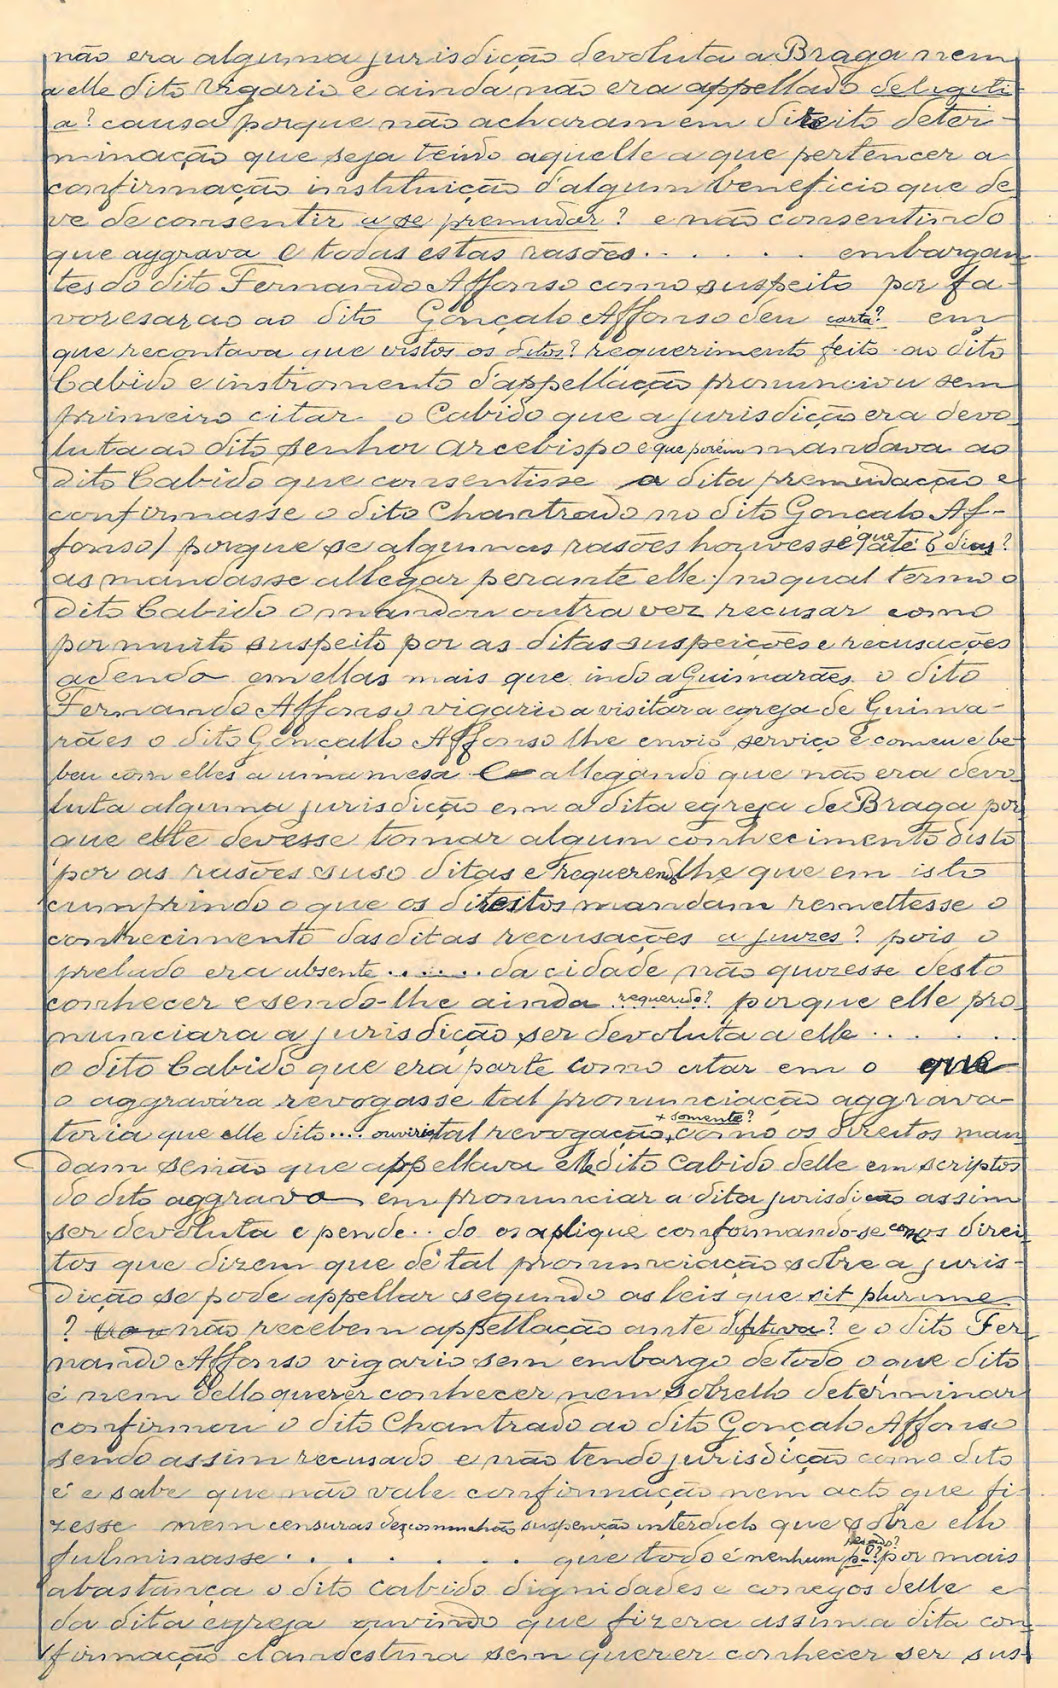 não era alguma jurisdição devoluta a Braga nem
a elle dito Vigario e ainda não era appellado deligiti
a? causa porque não acharam em direito deter-
minação que seja teúdo aquelle a que pertencer a
confirmação instituição d'algum beneficio que de
ve de consentir a se premudar? e não consentindo
que aggrava e todas estas rasões . . . . . . embargan
tes do dito Fernando Affonso como suspeito por fa-
voresarao ao dito Gonçalo Affonso deu carta? em
que recontava que vistos os ditos? requerimento feito ao dito
Cabido e instromento d'appellação pronunciou sem
primeiro citar o Cabido que a jurisdição era devo
luta ao dito senhor arcebispo e que porém mandava ao
dito Cabido que consentisse a dita premudação e
confirmasse o dito Chantrado no dito Gonçalo Af-
fonso / porque se algumas rasões houvesse que até 6 dias?
as mandasse allegar perante elle / no qual termo o
dito Cabido o mandou outra vez recusar como
por muito suspeito por as ditas suspeições e recusações
adendo em ellas mais que indo a Guimarães o dito
Fernando Affonso vigario a visitar a egreja de Guima-
rães o dito Gonçallo Affonso lhe envio serviço e comeu e be
beu com elles a uma mesa allegando que não era devo
luta alguma jurisdição em a dita egreja de Braga por
que elle devesse tomar algum conhecimento disto
por as rasões suso ditas e requerendo lhe que em isto
cumprindo o que os direitos mandam remettesse o
conhecimento das ditas recusações a juizes? pois o
prelado era absente . . . . . . da cidade não quizesse desto
conhecer e sendo-lhe ainda requerido? porque elle pro
nunciara a jurisdição ser devoluta a elle . . . . . .
o dito Cabido que era parte como citar em o que
o aggravára revogasse tal pronunciação aggrava-
toria que elle dito .... ouviria tal revogação + somente? como os direitos man
dam senão que appellava elle dito Cabido delle em scriptos
do dito aggravo em pronunciar a dita jurisdição assim
ser devoluta e pende . . do os aplique conformando-se com os direi
tos que dizem que de tal pronunciação sobre a juris-
dição se pode appellar segundo as leis que sit plurime
? não recebem appellação ante difitiva? e o dito Fer
nando Affonso vigario sem embargo de todo o que dito
é nem dello querer conhecer nem sobrello determinar
confirmou o dito Chantrado ao dito Gonçalo Affonso
sendo assim recusado e não tendo jurisdição como dito
é e sabe que não vale confirmação nem acto que fi-
zesse nem censuras suspenção interdicto que sobre ello
fulminasse . . . . . . . . que todo é nenhum por mais
abastança o dito Cabido dignidades e conegos delle e
da dita egreja ouvindo que fizera assim a dita con
firmação clandestina sem querer conhecer ser sus-